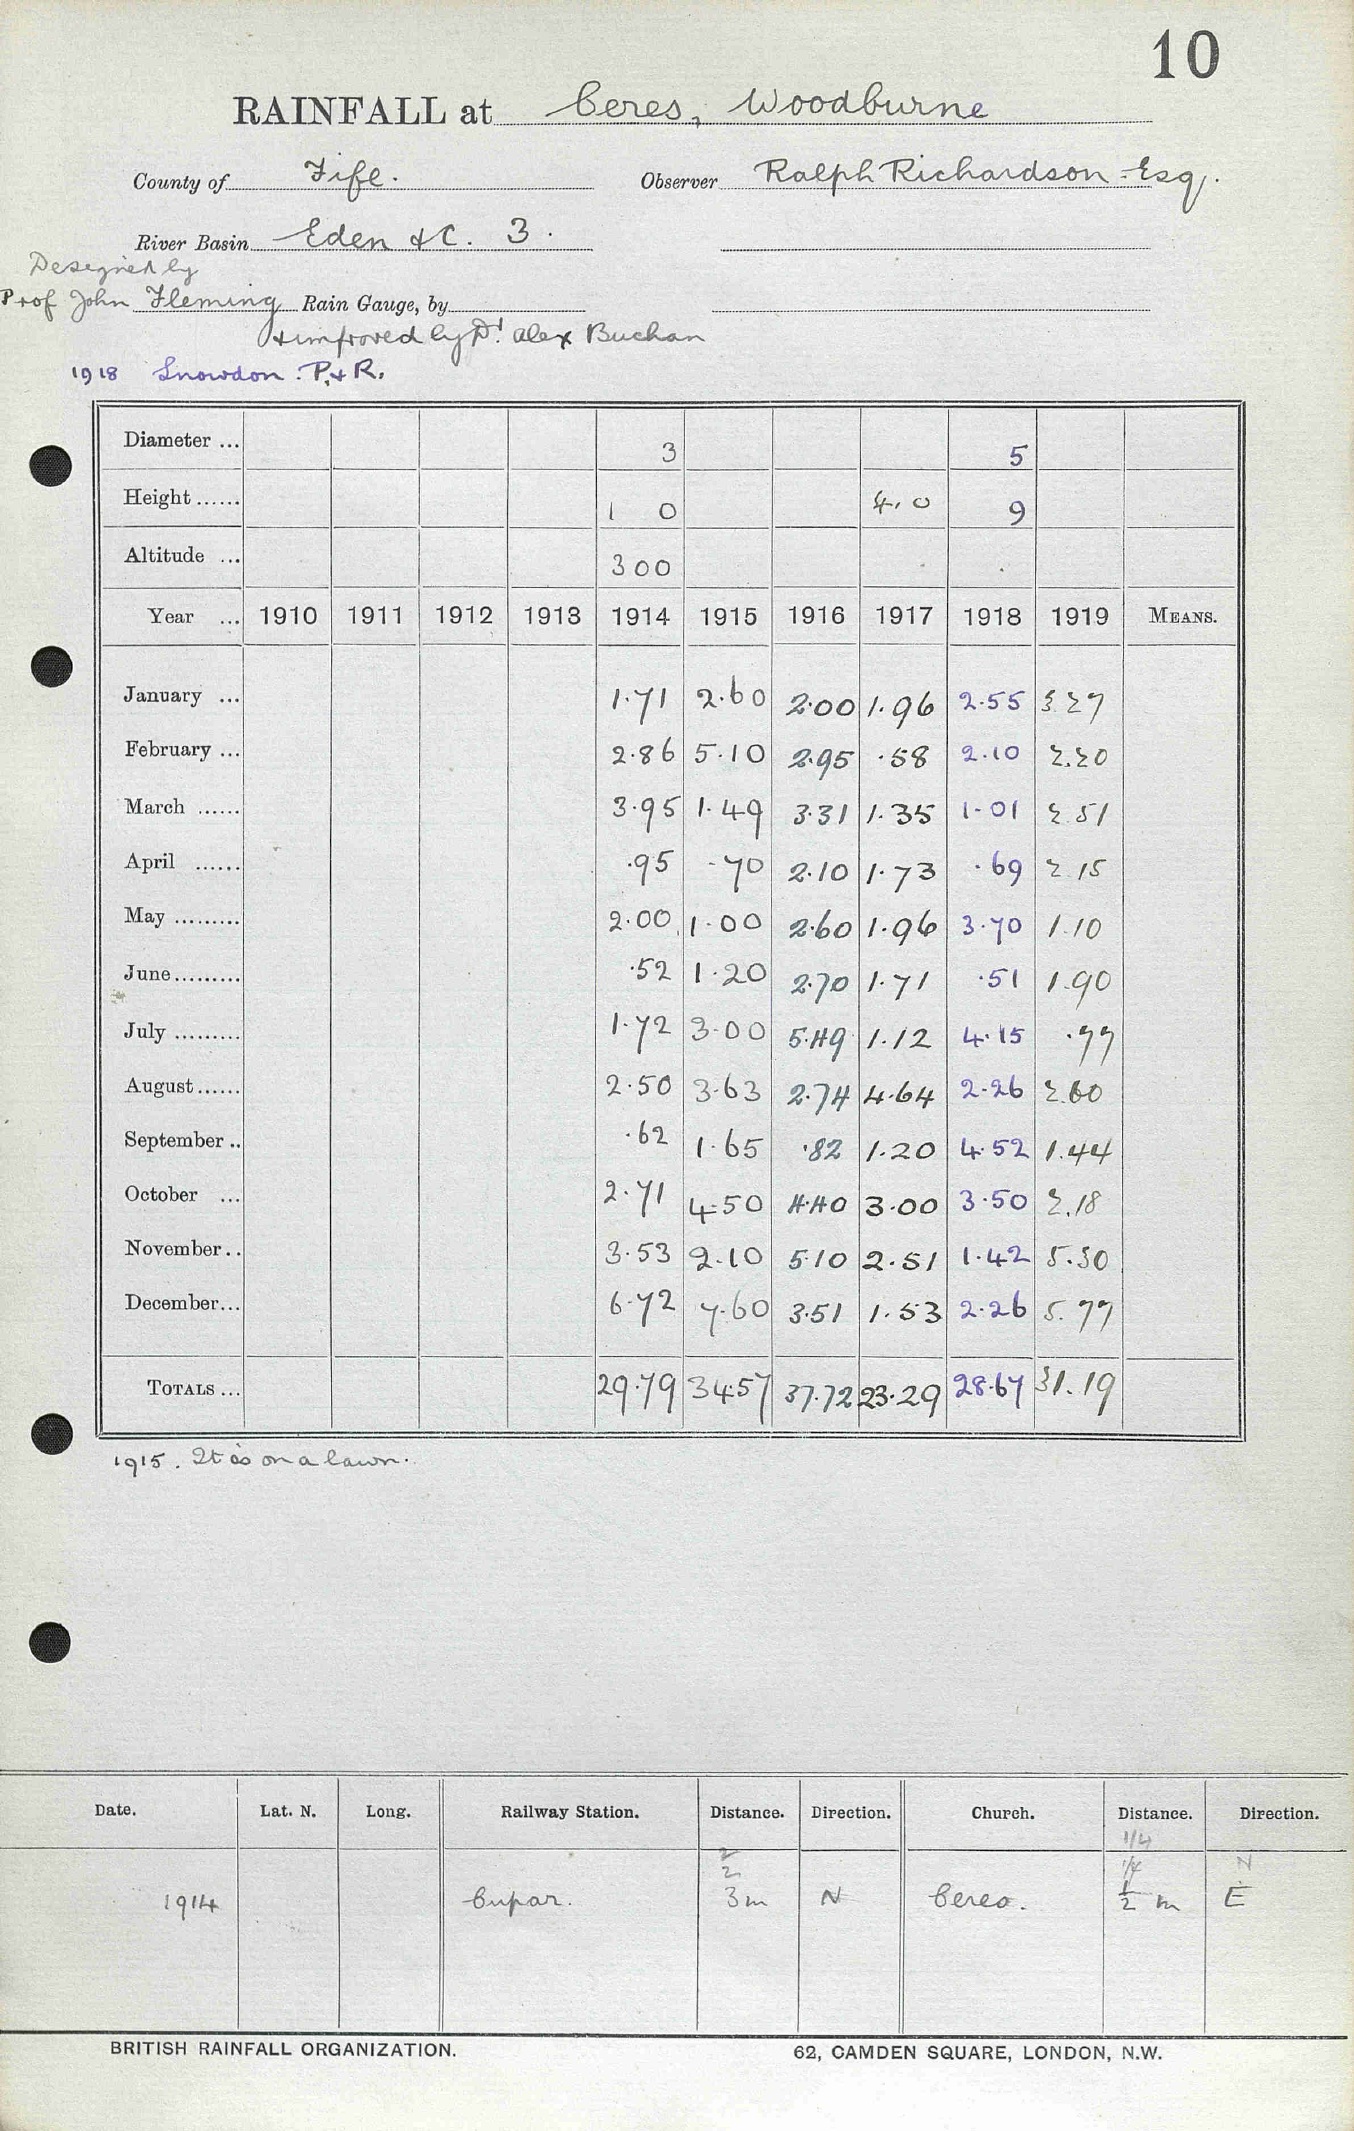 10
RAINFALL at Ceres, Woodburne
County of Fife. Observer Ralph Richardson Esq.
River Basin Eden &c. 3.
Designed by
Prof John Fleming Rain Gauge, by
& improved by Dr. Alex Buchan
1918 Snowdon. P. & R.
Diameter ... 3 5
Height ...... 1 0 4.0 9
Altitude ... 300
Year ... 1910 1911 1912 1913 1914 1915 1916 1917 1918 1919 MEANS.
January ... 1.71 2.60 2.00 1.96 2.55 3.27
February ... 2.86 5.10 2.95 .58 2.10 2.20
March ...... 3.95 1.49 3.31 1.35 1.01 2.51
April ...... .95 .70 2.10 1.73 .69 2.15
May ......... 2.00 1.00 2.60 1.96 3.70 1.10
June ......... .52 1.20 2.70 1.71 .51 1.90
July ......... 1.72 3.00 5.49 1.12 4.15 .77
August ...... 2.50 3.63 2.74 4.64 2.26 2.60
September .. .62 1.65 .82 1.20 4.52 1.44
October ... 2.71 4.50 4.40 3.00 3.50 2.18
November .. 3.53 2.10 5.10 2.51 1.42 5.30
December ... 6.72 7.60 3.51 1.53 2.26 5.77
TOTALS ... 29.79 34.57 37.72 23.29 28.67 31.19
1915. It is on a lawn.
Date. Lat. N. Long. Railway Station. Distance. Direction. Church. Distance. Direction.
1/4
2 1/4 N
2
1914 Cupar. 3m N Ceres. 1/2 m E
BRITISH RAINFALL ORGANIZATION. 62, CAMDEN SQUARE, LONDON, N.W.